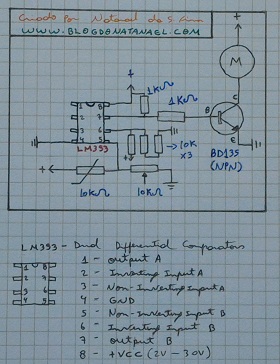 Criado Por Natanael de S. Lima
WWW.BLOGDONATANAEL.COM
+
M
+
1KΩ
1KΩ
C
B
E
1 8
2 7
3 6
4 5
LM393
→10K
x3
BD135
(NPN)
+
+
10KΩ
10KΩ
LM393 - Dual Differential Comparators
1 8
2 7
3 6
4 5
1 - output A
2 - Inverting Input A
3 - Non-Inverting Input A
4 - GND
5 - Non-Inverting Input B
6 - Inverting Input B
7 - output B
8 - +VCC (2V - 30V)